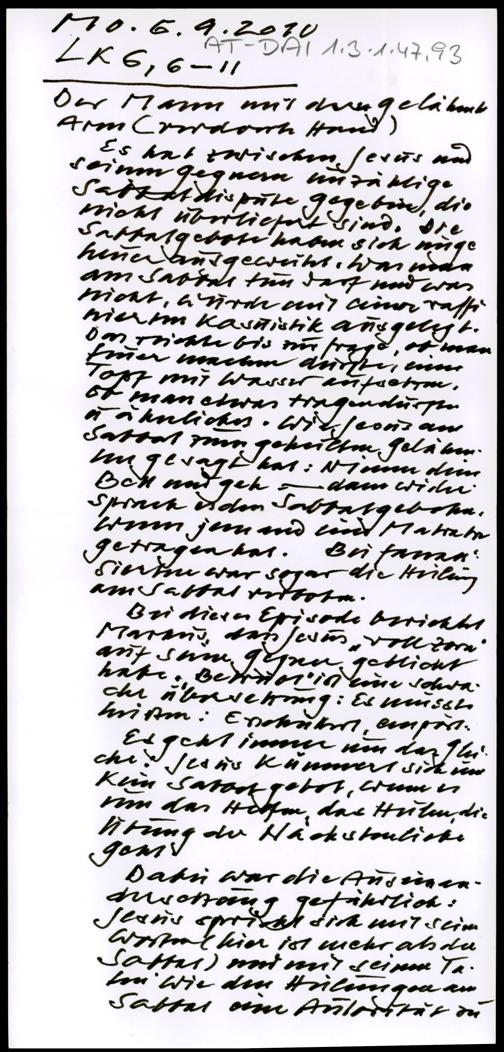 Mo. 6.9.2010
AT-DAI 1.3.1.47.93
LK 6,6-11
Der Mann mit dem gelähmt
Arm (verdorrte Hand)
Es hat zwischen Jesus und
seinen Gegnern unzählige
Sabbatdispute gegeben, die
nicht überliefert sind. Die
Sabbatgebote haben sich unge
heuer ausgeweitet. Was man
am Sabbat tun darf und was
nicht, wurde mit einer raffi
nierten Kasuistik ausgelegt.
Das reichte bis zur Frage, ob man
Feuer machen dürfte, einen
Topf mit Wasser aufsetzen,
ob man etwas tragen dürfte
u ähnliches. Wie Jesus am
Sabbat zum geheilten Gelähm-
ten gesagt hat: Nimm dein
Bett und geh — dann wider
sprach es den Sabbatgeboten,
wenn jemand eine Matratze
getragen hat. Bei fanati
sierten war sogar die Heilung
am Sabbat verboten.
Bei dieser Episode berichtet
Markus, dass Jesus „voll Zorn"
auf seine Gegner geblickt
habe. „Betrübt" ist eine schwa-
che Übersetzung: Es müsste
heissen: Erschüttert, empört.
Es geht immer um das Glei-
che: Jesus kümmert sich um
kein Sabbatgebot, wenn es
um das Helfen, das Heilen, die
Übung der Nächstenliebe
geht
Dabei war die Auseinan-
dersetzung gefährlich:
Jesus spricht sich mit seinen
Worten (hier ist mehr als der
Sabbat) und mit seinen Ta-
ten wie den Heilungen am
Sabbat eine Autorität zu